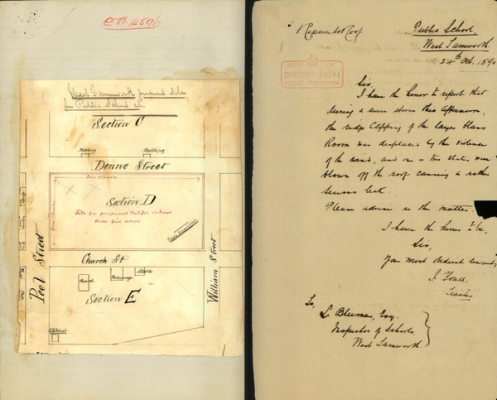 West Tamworth proposed site
for Public School
Section C
Denne Street
Section D
Site for proposed Public School
Area five acres
Peel Street
William Street
Church St
Section E
Repairs to Roof
Public School
West Tamworth
24th Oct. 1890
Sir,
I have the honor to report that
during a severe storm this afternoon,
the ridge capping of the large Class
Room was displaced by the violence
of the wind, and one or two slates were
blown off the roof causing a rather
serious leak.
Please advise in the matter.
I have the honor
Sir,
Your most obedient servant,
Teacher
To,
L. Blumer, Esq.
Inspector of Schools
West Tamworth